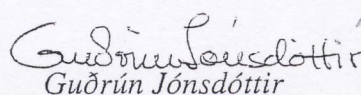 Guðrún Jónsdóttir
Guðrún Jónsdóttir